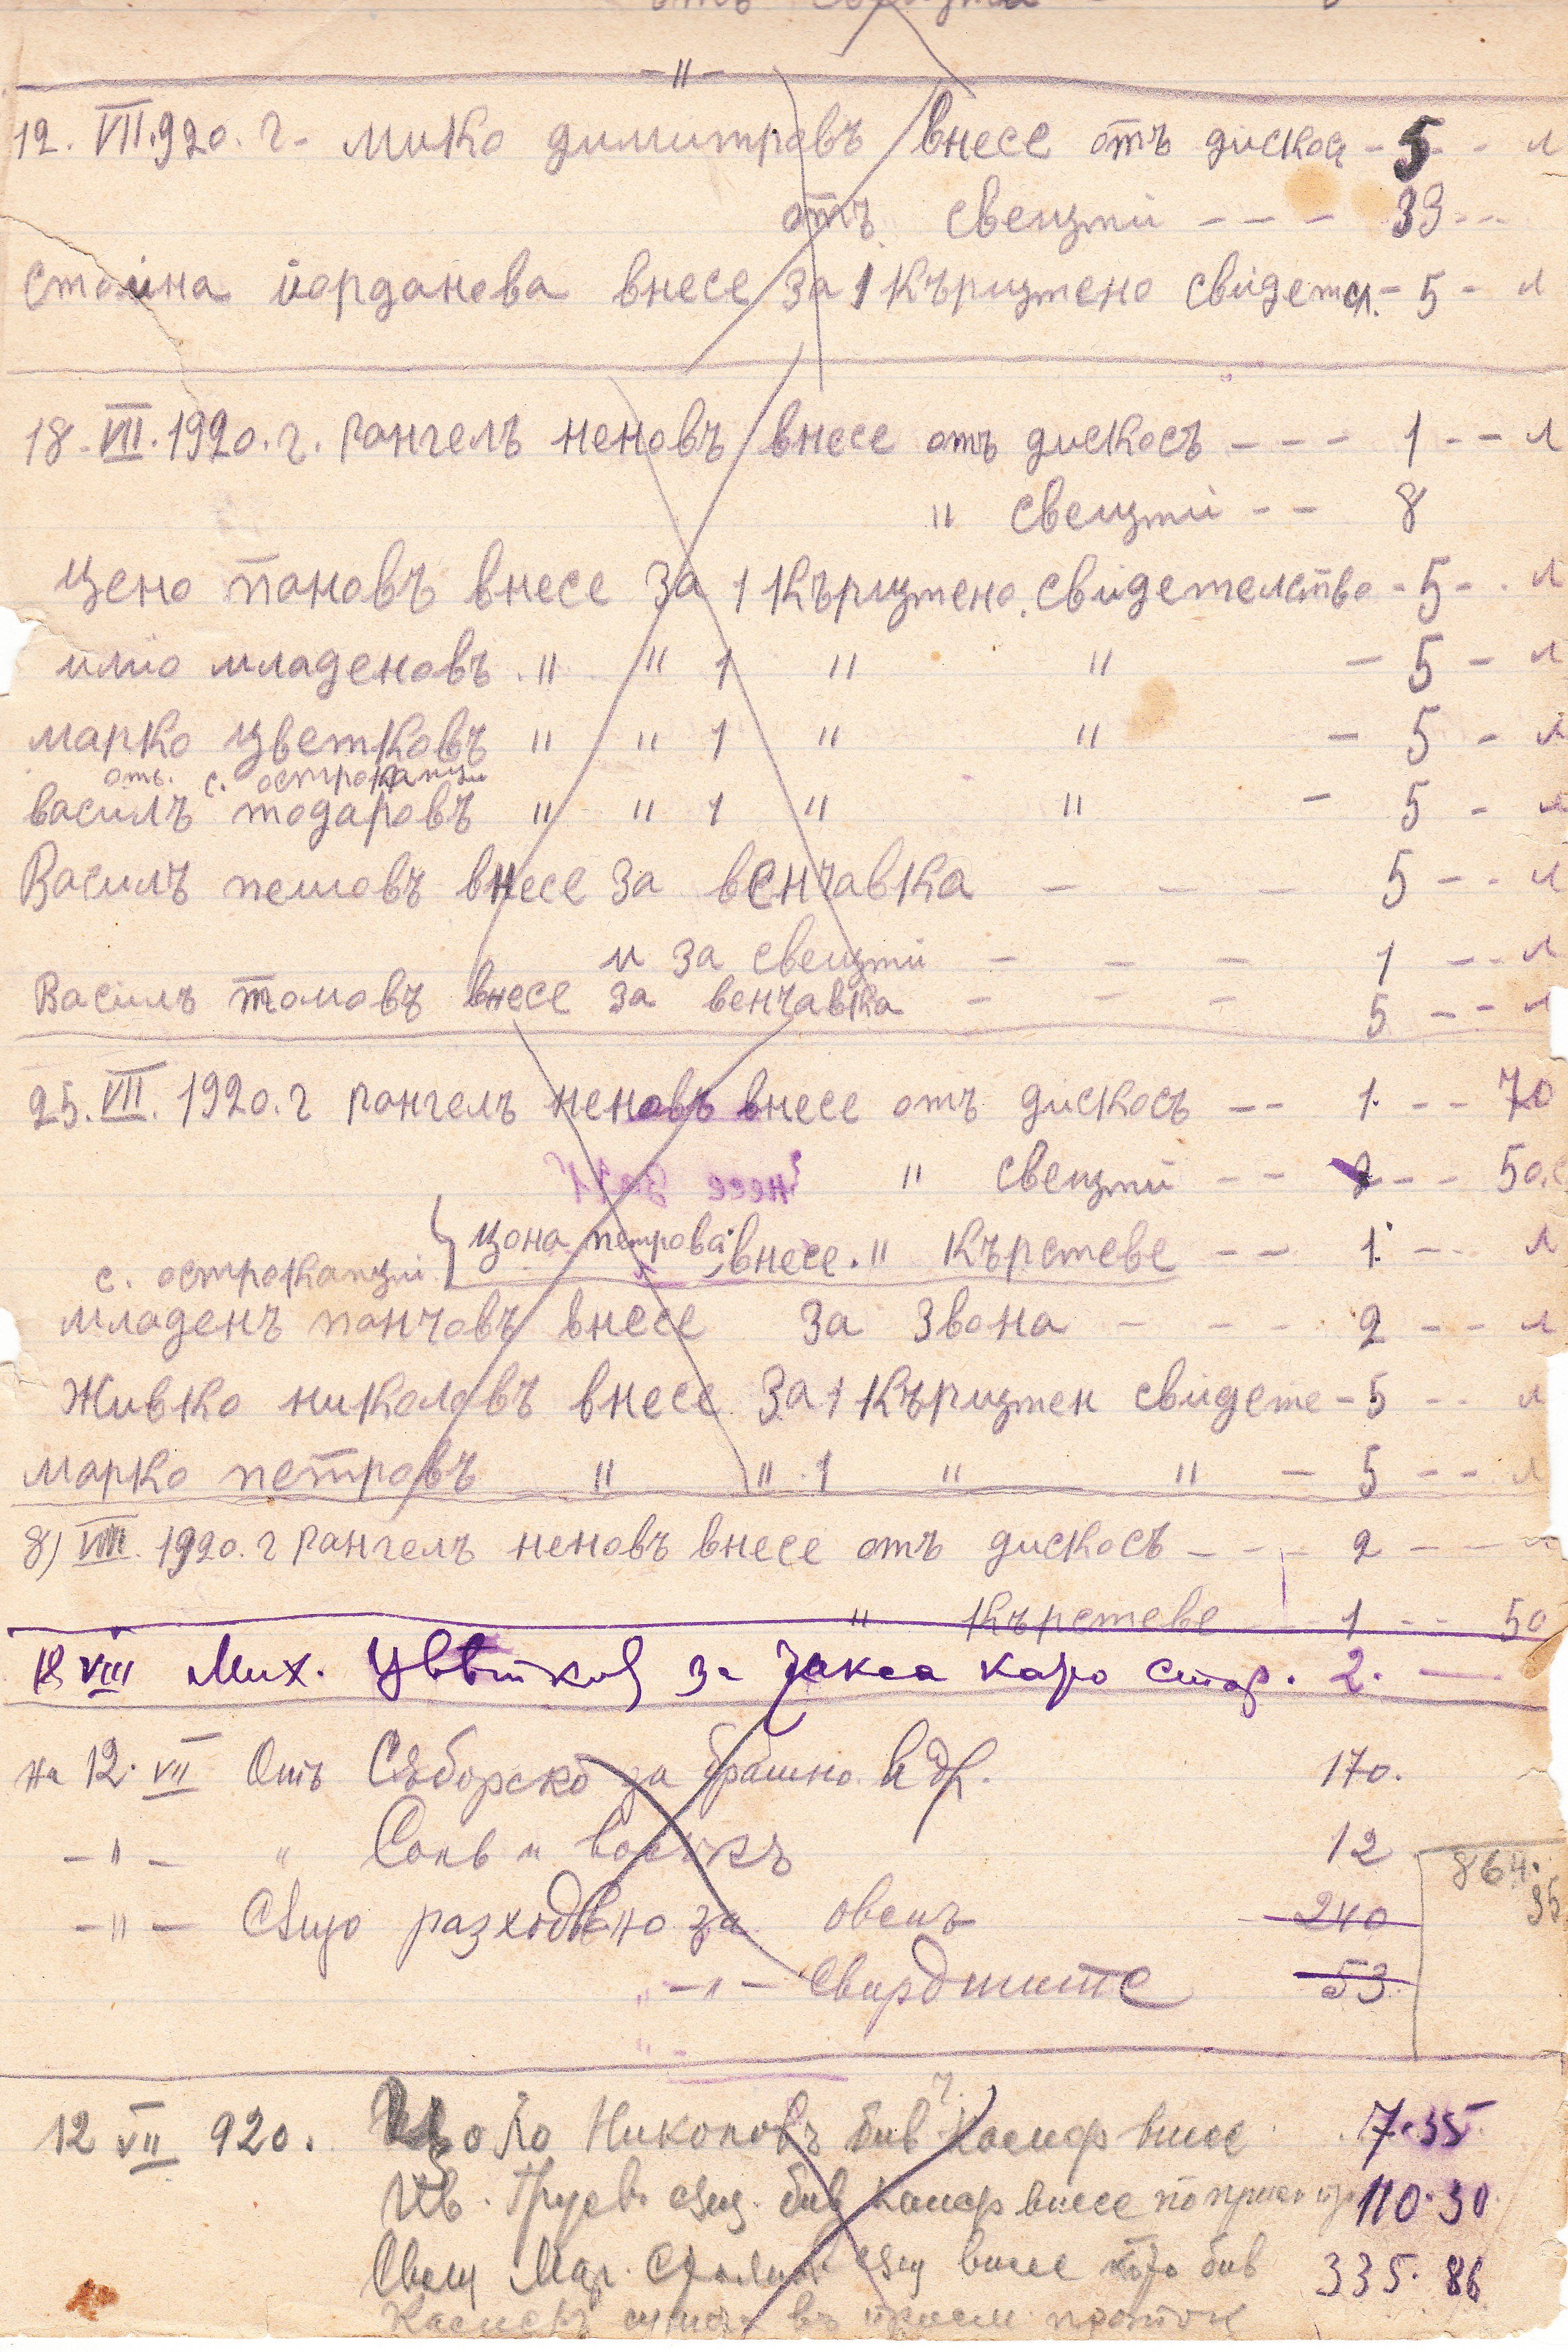 отъ свещти
- 〃 -
12. VII.920. г. мико димитровъ внесе отъ дискоа - 5 - - л
отъ свещти - - - 33 - -
стоина йорданова внесе за 1 кърщтено свидетел. - 5 - л
18. VII. 1920. г. рангелъ неновъ внесе отъ дискосъ - - - 1 - - л
〃 свещти - - 8
цено пановъ внесе за 1 кърщтено. свидетелство - 5 - - л
илио младеновъ. 〃 〃 1 〃 〃 - 5 - л
марко цветковъ 〃 〃 1 〃 〃 - 5 - л
отъ. с. острокапци
василъ тодаровъ 〃 〃 1 〃 〃 - 5 - л
Василъ пешовъ внесе за венчавка - - - 5 - - л
и за свещти - - - 1 - - л
Василъ томовъ внесе за венчавка - - - 5 - - л
25. VII. 1920. г рангелъ неновъ внесе отъ дискосъ - - 1. - - 70
〃 свещти - - 2 - - 50.
цона петрова внесе. 〃 кърстеве - - 1. - - л
с. острокапци
младенъ панчовъ внесе за звона - - - 2 - - л
Живко николовъ внесе за 1 кърщтен свидете - 5 - - л
марко петровъ 〃 〃 1 〃 〃 - 5 - - л
8) VIII. 1920. г рангелъ неновъ внесе отъ дискосъ - - - 2 - - -
〃 кърстеве 1 - - 50
18 VIII Мих. Цвѣтковъ за такса като стар. 2. -
на 12. VII Отъ Съборско за брашно и др. 170.
- 〃 - 〃 Соль и восъкъ 12
- 〃 - Също разходвано за овенъ 240
〃 - 〃 - Свирджиите 53
864.
35
12 VII 920. Цоло Николовъ бив. касиер внесе 7.35
Ив. Групев. същ. бив касиер внесе по 110.30.
Свещ Мар. същ внесе като бив 335.86
Касиеръ въ проток